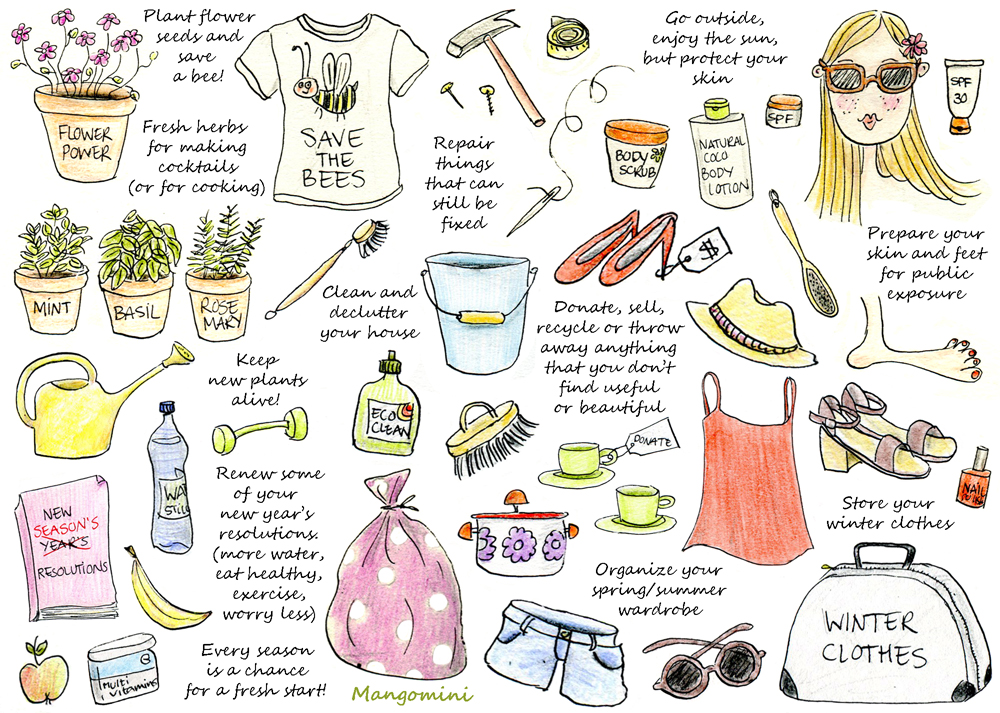 Plant flower
seeds and
save
a bee!
FLOWER
POWER
SAVE
THE
BEES
Fresh herbs
for making
cocktails
(or for cooking)
MINT
BASIL
ROSE
MARY
Repair
things
that can
still be
fixed
Go outside,
enjoy the sun,
but protect your
skin
SPF
30
SPF
BODY
SCRUB
NATURAL
COCO
BODY
LOTION
Prepare your
skin and feet
for public
exposure
Clean and
declutter
your house
$
Donate, sell,
recycle or throw
away anything
that you don't
find useful
or beautiful
DONATE
Keep
new plants
alive!
ECO
CLEAN
NEW
SEASON'S
YEAR'S
RESOLUTIONS
Renew some
of your
new year's
resolutions.
(more water,
eat healthy,
exercise,
worry less)
Multi
Vitamins
Every season
is a chance
for a fresh start!
Mangomini
Organize your
spring/summer
wardrobe
NAIL
Store your
winter clothes
WINTER
CLOTHES